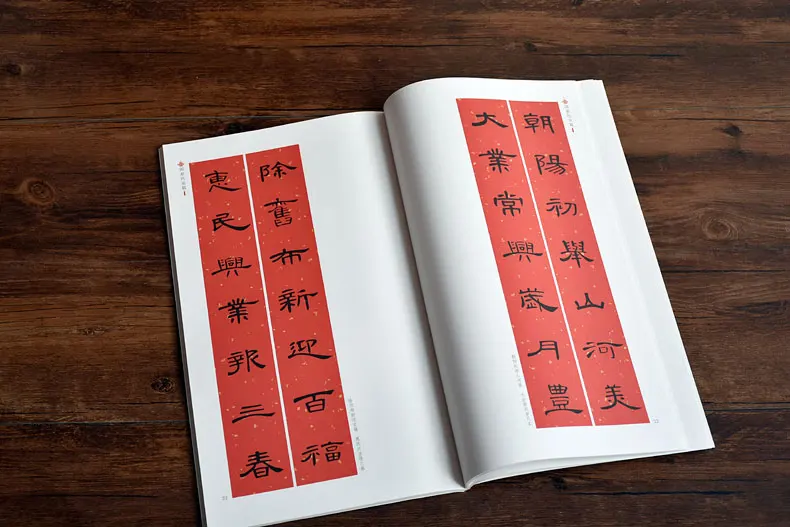 朝陽初舉山河美
大業常興歲月豊
除舊布新迎百福
惠民興業報三春